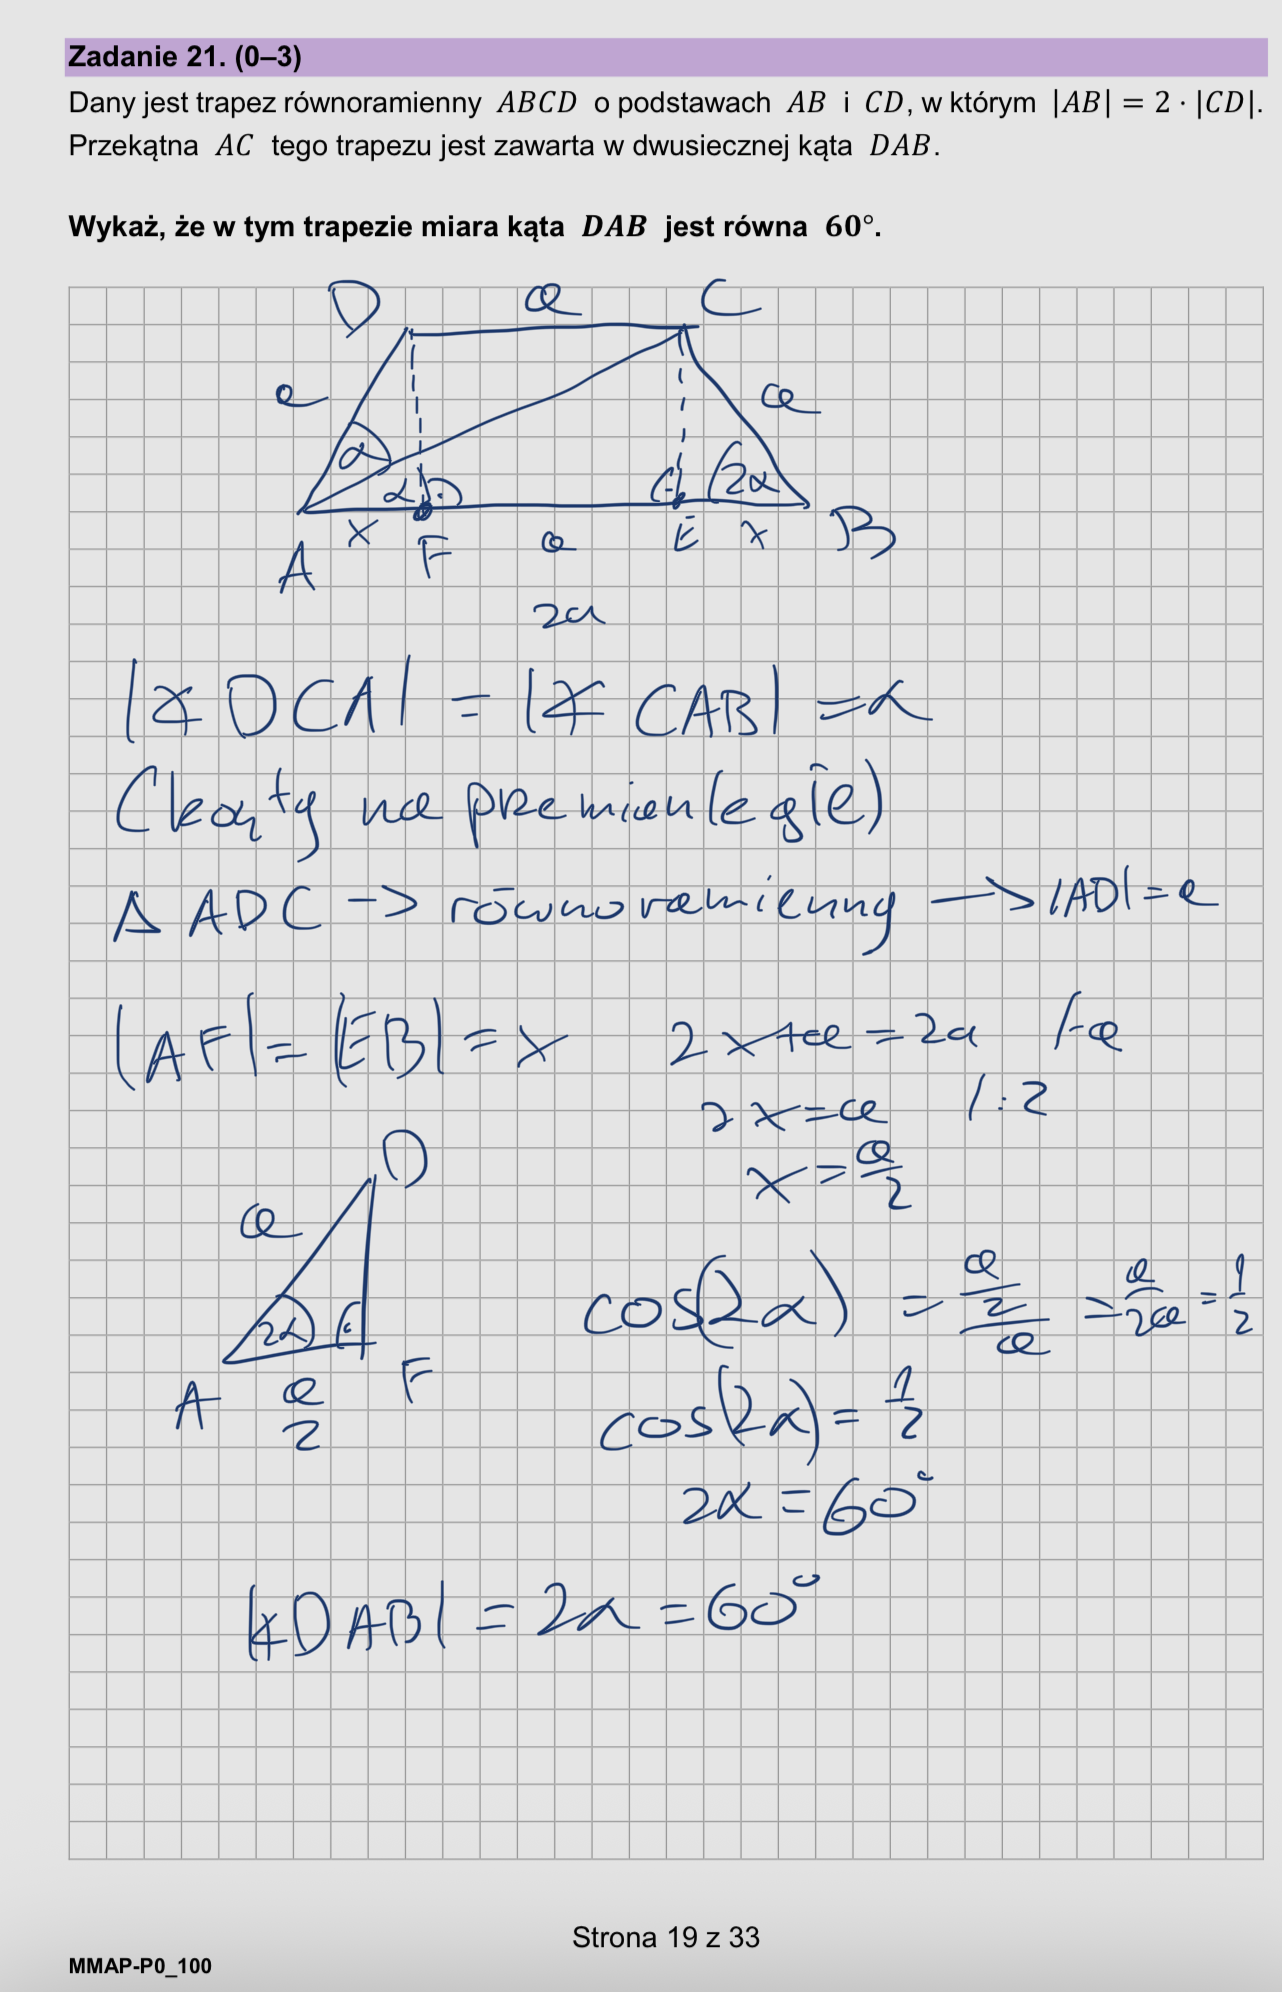 Zadanie 21. (0–3)
Dany jest trapez równoramienny ABCD o podstawach AB i CD, w którym |AB| = 2 · |CD|.
Przekątna AC tego trapezu jest zawarta w dwusiecznej kąta DAB.
Wykaż, że w tym trapezie miara kąta DAB jest równa 60°.
D a C
a a
α
α 2α
A x F a E x B
2a
|∡ DCA| = |∡ CAB| = α
(kąty na przemianległe)
Δ ADC -> równoramienny -> |AD| = a
|AF| = |EB| = x 2x+a = 2a /-a
2x = a /:2
x = a/2
D
a
2α
A a/2 F
cos(2α) = (a/2)/a = a/2a = 1/2
cos(2α) = 1/2
2α = 60°
|∡DAB| = 2α = 60°
Strona 19 z 33
MMAP-P0_100